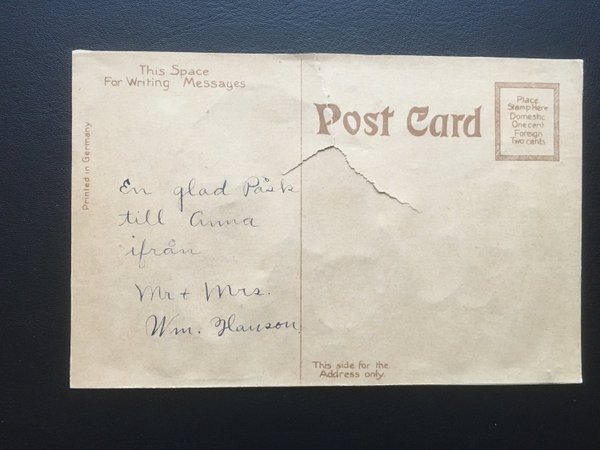 This Space
For Writing Messages
Printed in Germany
En glad Påsk
till Anna
ifrån
Mr + Mrs.
Wm. Hanson
Post Card
Place
Stamp Here
Domestic
One cent
Foreign
Two cents
This side for the
Address only.